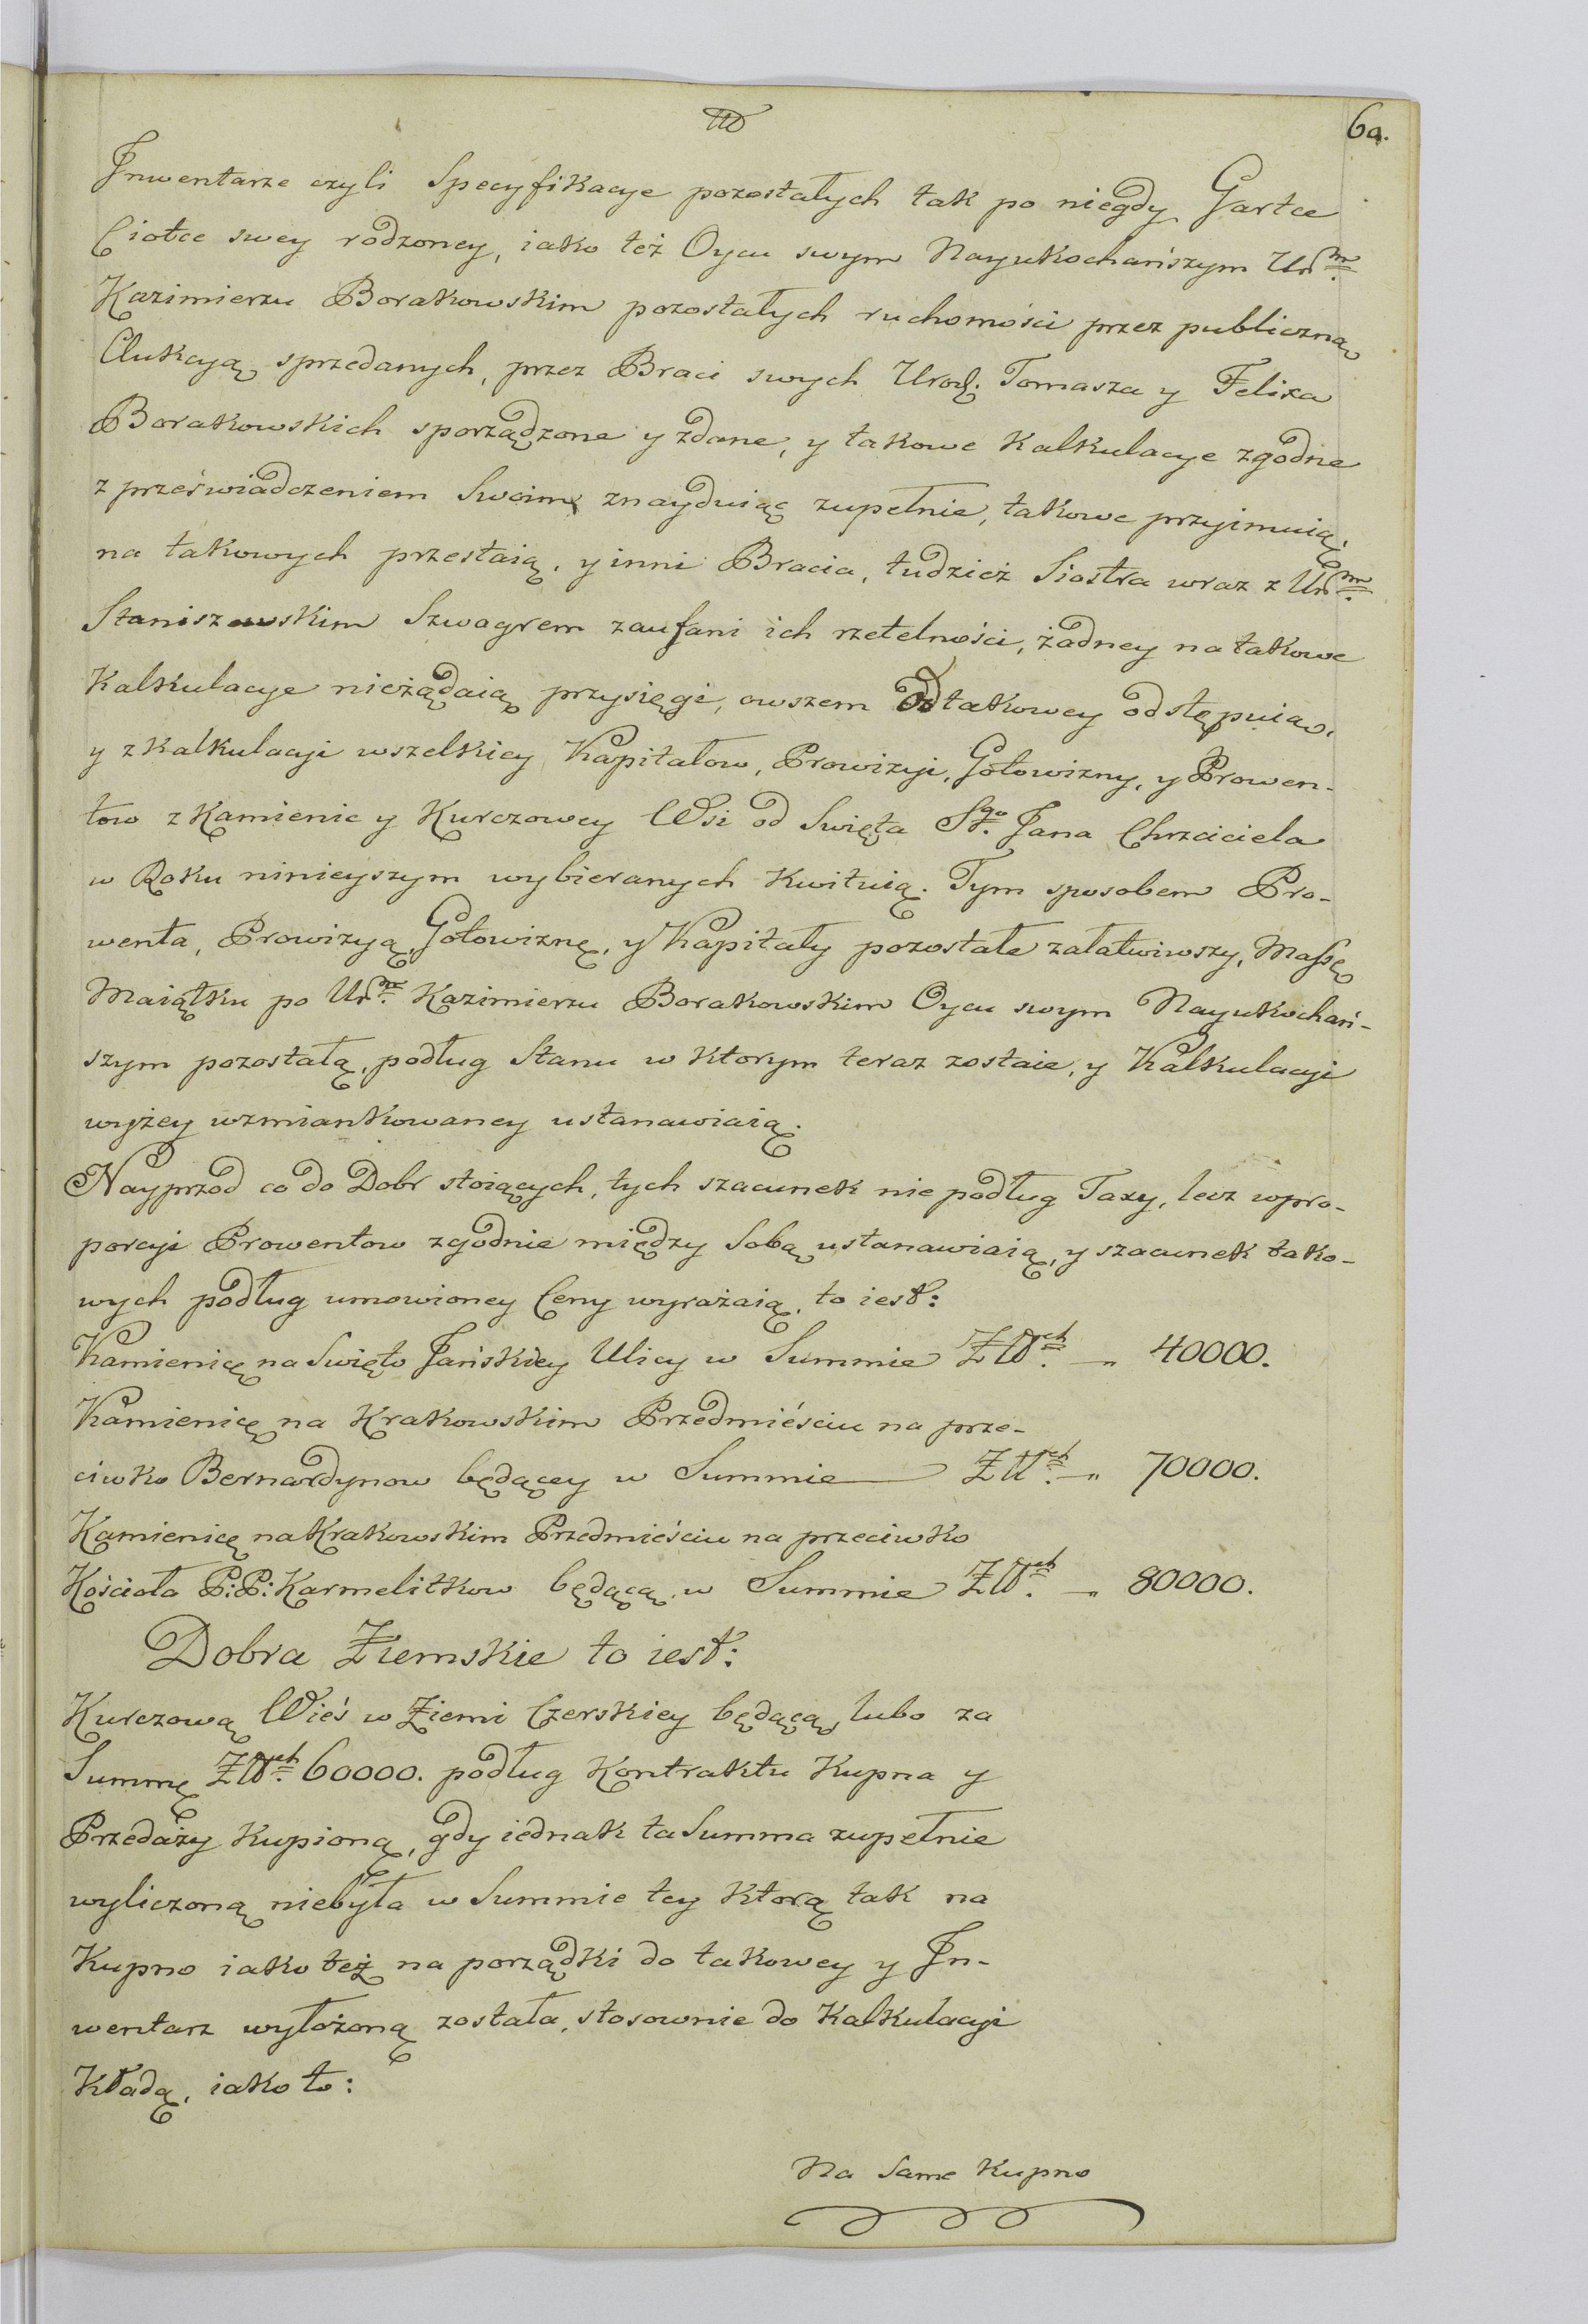 60.
Inwentarze czyli Specyfikacye pozostałych tak po niegdy Gartce
Ciotce swey rodzoney, iako też Oycu swym Nayukochańszym Ur.m
Kazimierzu Borakowskim pozostałych ruchomości przez publiczną
Aukcyą sprzedanych, przez Braci swych Urod. Tomasza y Felixa
Borakowskich sporządzone y zdane, y takowe Kalkulacye zgodne
z przeświadczeniem Swoim znayduiąc zupełnie, takowe przyimuią,
na takowych przestaią, y inni Bracia, tudzież Siostra wraz z Ur.m
Staniszewskim Szwagrem zaufani ich rzetelności, żadney na takowe
Kalkulacye nieżądaią przysięgi, owszem od takowey odstępuią,
y z Kalkulacyi wszelkiey Kapitałow, Prowizyi, Gotowizny, y Prowen-
tow z Kamienic y Kurczowey Wsi od Swięta Sgo. Jana Chrzciciela
w Roku ninieyszym wybieranych Kwituią. Tym sposobem Pro-
wenta, Prowizyą, Gotowiznę, y Kapitały pozostałe załatwiwszy, Massę
Maiątku po Ur.m Kazimierzu Borakowskim Oycu swym Nayukochań-
szym pozostałą, podług Stanu w Ktorym teraz zostaie, y Kalkulacyi
wyżey wzmiankowaney ustanawiaią.
Nayprzod co do Dobr stoiących, tych szacunek nie podług Taxy, lecz w pro-
porcyi Prowentow zgodnie między Sobą ustanawiaią, y szacunek tako-
wych podług umowioney Ceny wyrażaią, to iest:
Kamienicę na Swięto Jańskiey Ulicy w Summie Złłch. — 40000.
Kamienicę na Krakowskim Przedmieściu na prze-
ciwko Bernardynow będącey w Summie — Złłch. — 70000.
Kamienicę na Krakowskim Przedmieściu na przeciwko
Kościoła P:P: Karmelitkow będącą w Summie Złłch. — 80000.
Dobra Ziemskie to iest:
Kurczową Wieś w Ziemi Czerskiey będącą, lubo za
Summę Złłch. 60000. podług Kontraktu Kupna y
Przedaży Kupioną, gdy iednak ta Summa zupełnie
wyliczoną niebyła w Summie tey Ktorą tak na
Kupno iako też na porządki do takowey y In-
wentarz wyłożoną została, stosownie do Kalkulacyi
Kładą, iako to:
Na Same Kupno